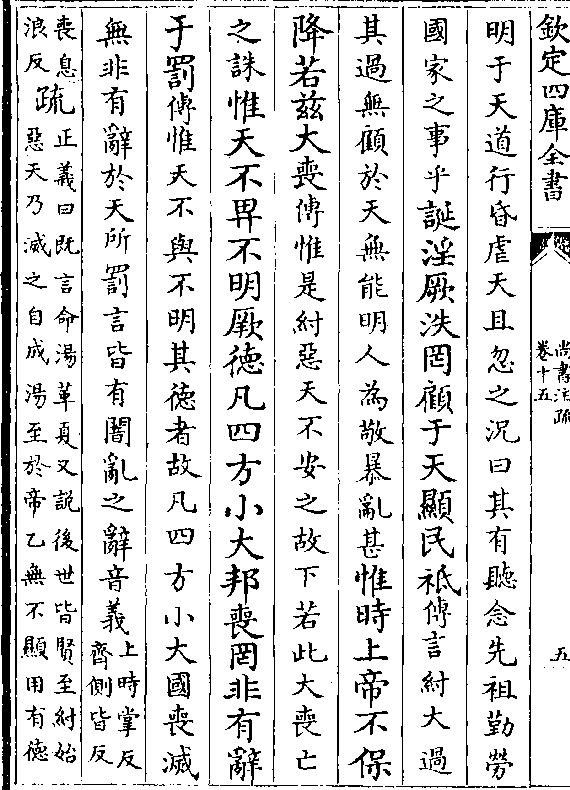 欽定四庫全書
尚書注疏
卷十五
五
明于天道行昏虐天且忽之況曰其有聽念先祖勤勞
國家之事乎誕淫厥泆罔顧于天顯民祗傳言紂大過
其過無顧於天無能明人為敬暴亂甚惟時上帝不保
降若兹大喪傳惟是紂惡天不安之故下若此大喪亡
之誅惟天不畀不明厥德凡四方小大邦喪罔非有辭
于罰傳惟天不與不明其德者故凡四方小大國喪滅
無非有辭於天所罰言皆有闇亂之辭音義
上時掌反
齊側皆反
喪息
浪反
疏
正義曰既言命湯革夏又説後世皆賢至紂始
惡天乃滅之自成湯至於帝乙無不顯用有德